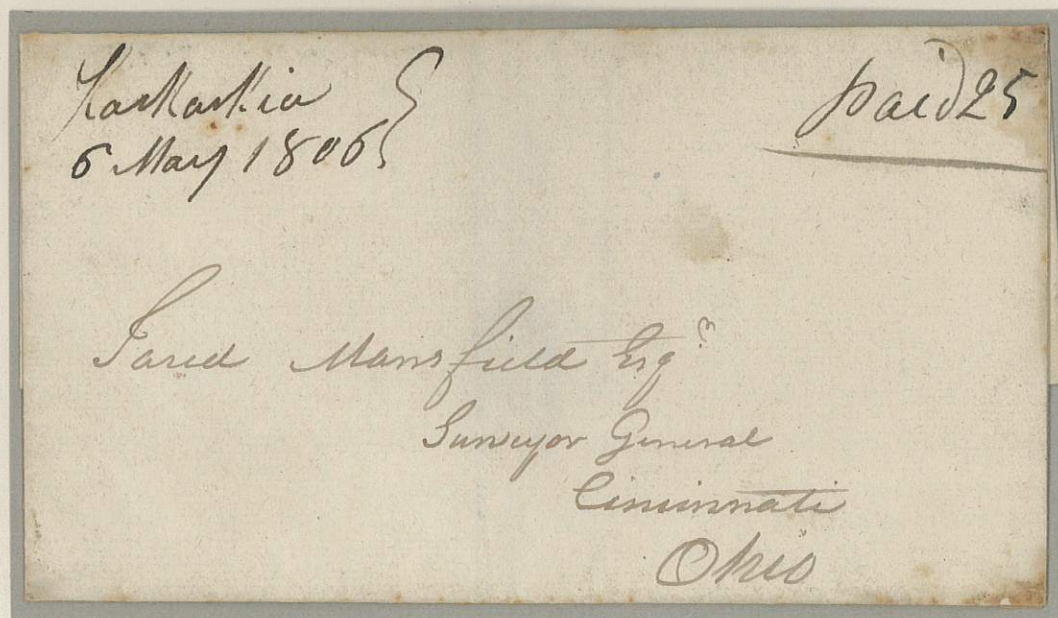 Kaskaskia
6 May 1806
paid 25
Jared Mansfield Esqr.
Surveyor General
Cincinnati
Ohio